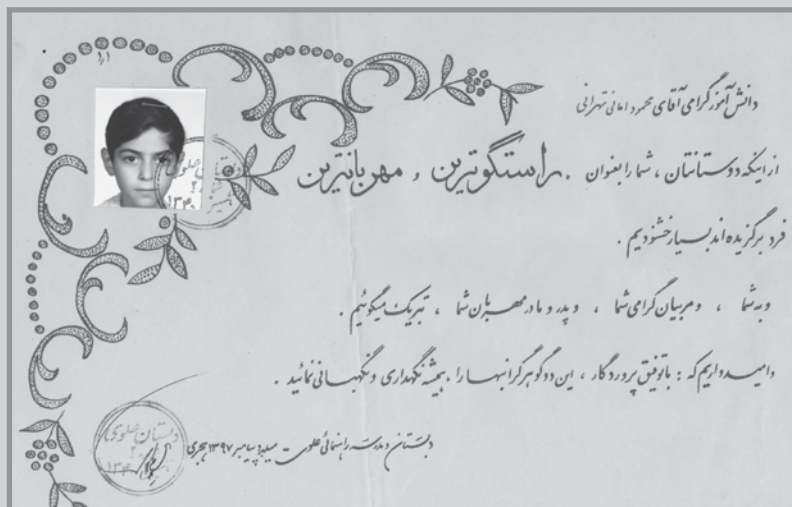 دانش آموز گرامی آقای محمود امانی تهرانی
از اینکه دوستانتان ، شما را بعنوان . راستگوترین و مهربانترین
فرد برگزیده اند بسیار خشنودیم .
و به شما ، و مربیان گرامی شما ، و پدر و مادر مهربان شما ، تبریک میگوئیم .
و امیدواریم که : با توفیق پروردگار ، این دو گوهر گرانبها را ، همیشه نگهداری و نگهبانی نمائید .
دبستان و مدرسه راهنمائی علوی - میلاد پیامبر ۱۳۹۷ هجری
دبستان علوی